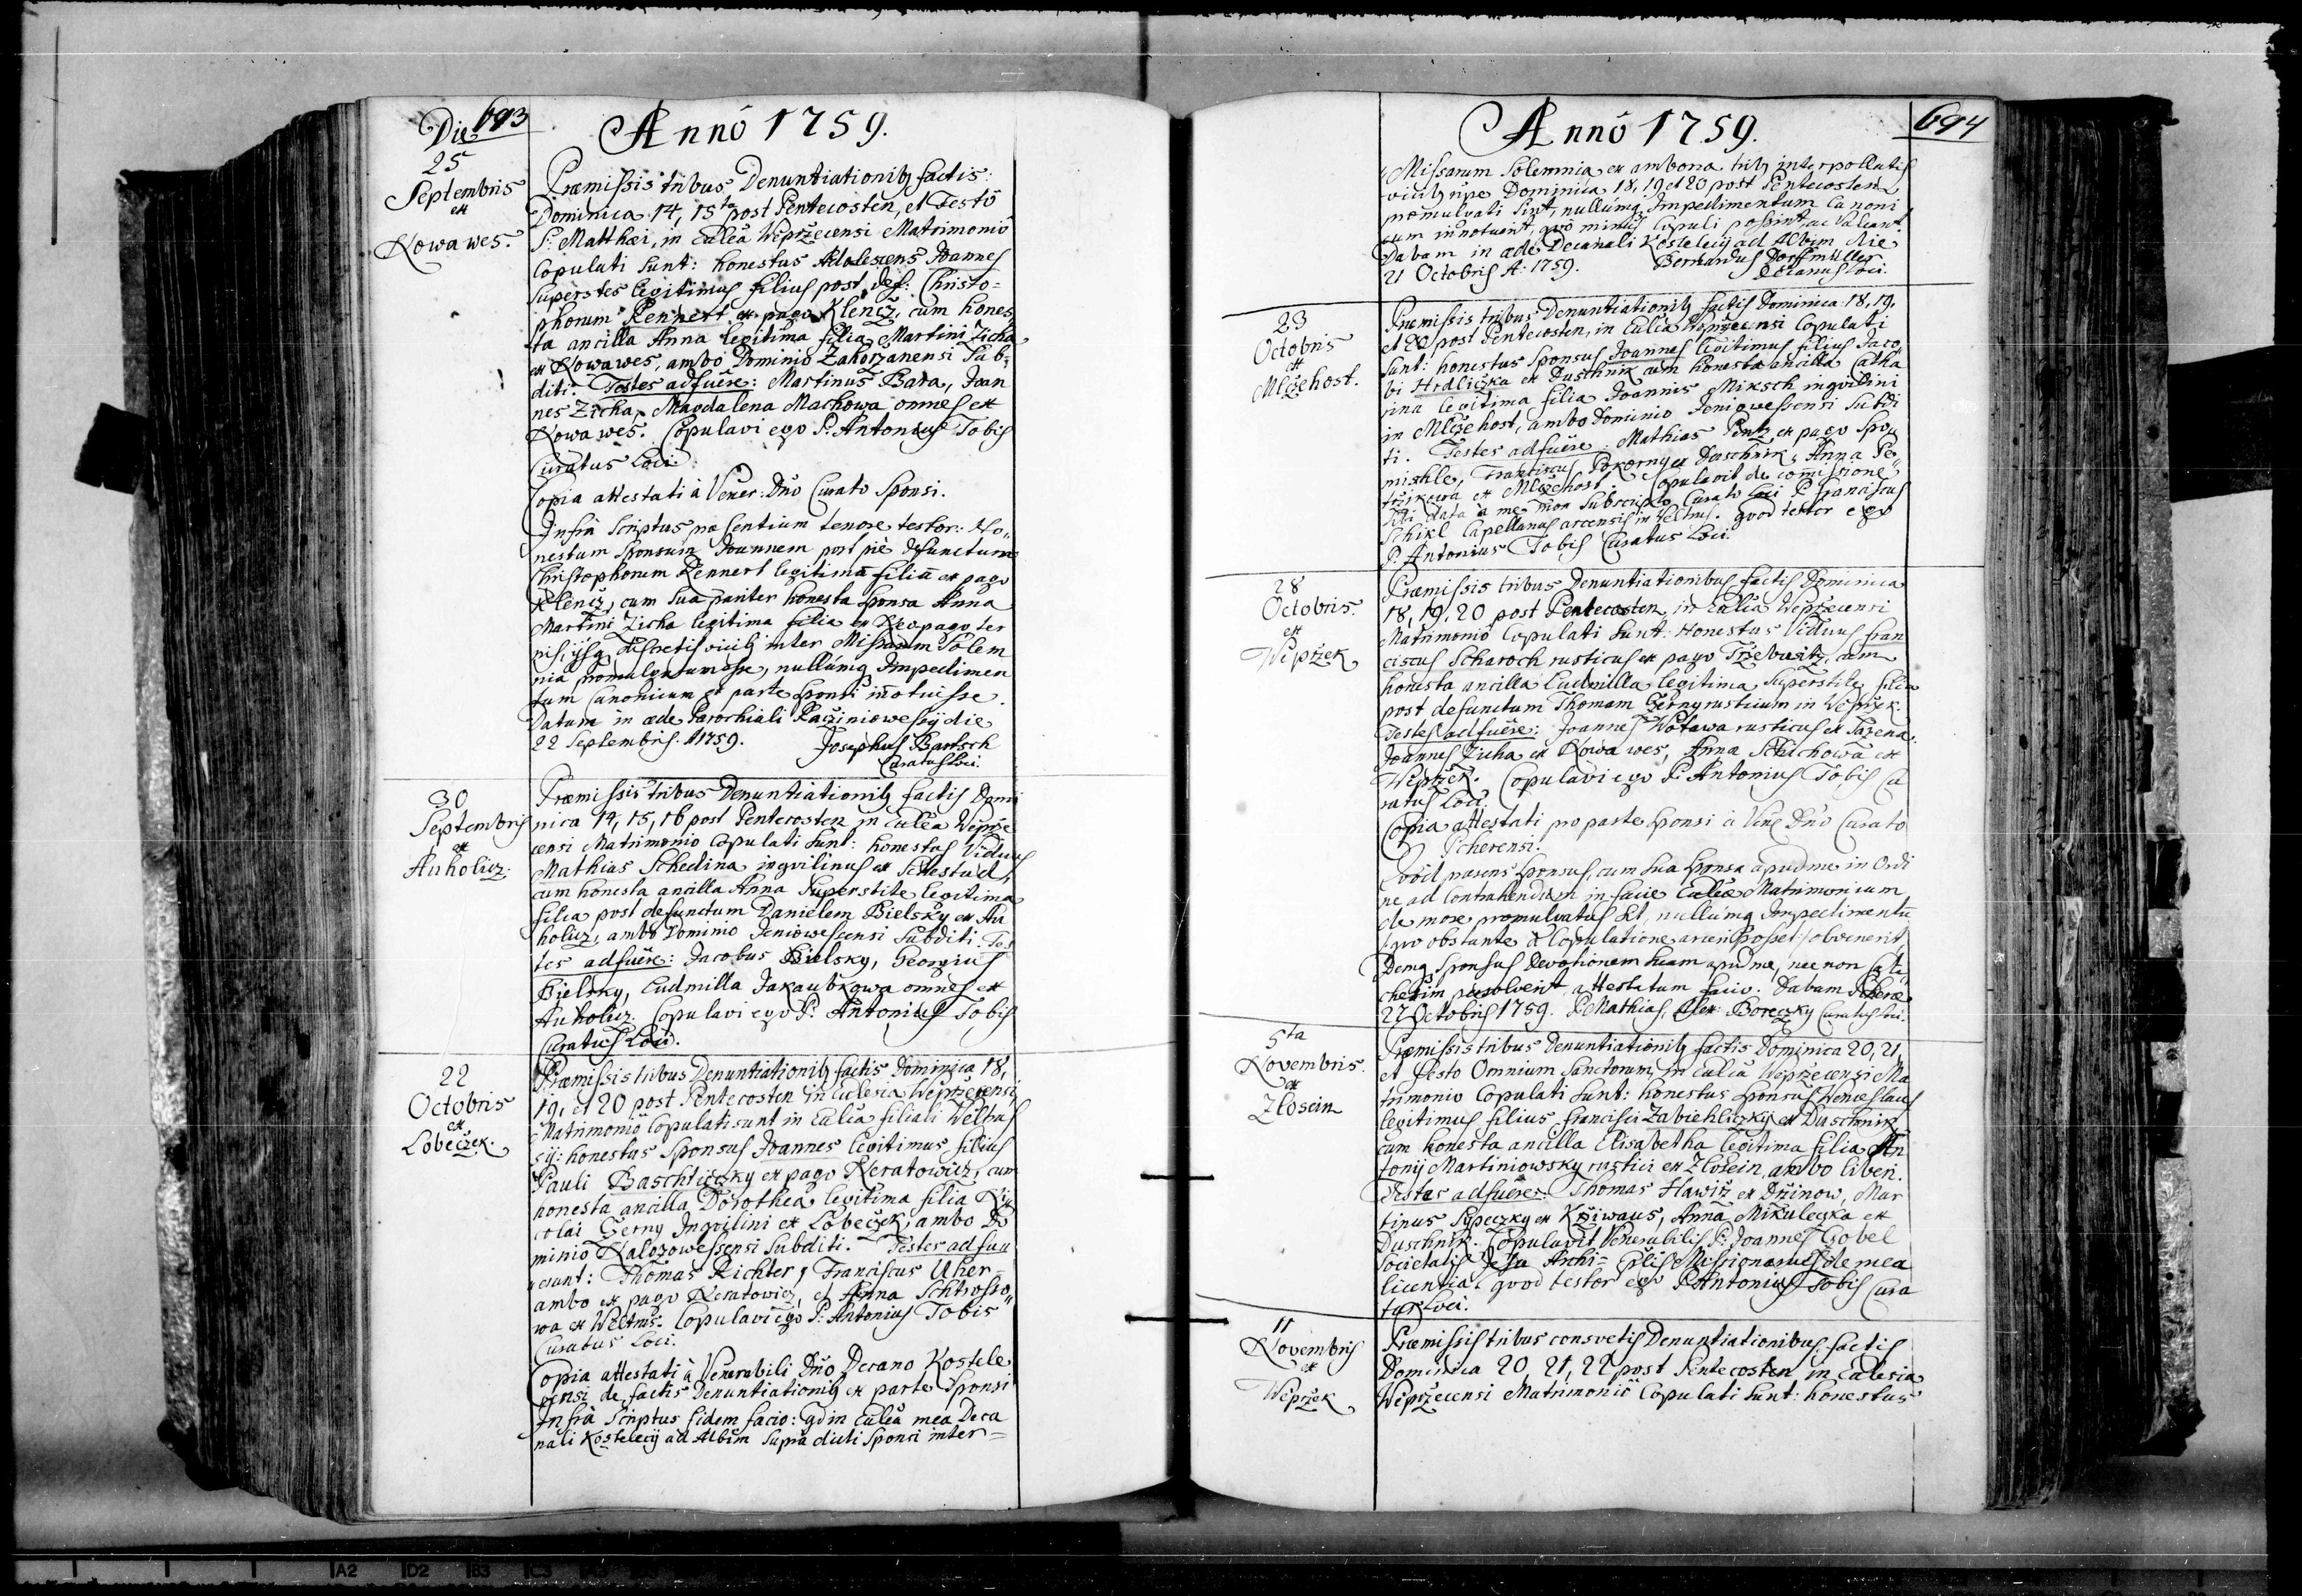 Die 693
Annô 1759.
25
Septembris
ex
Nowa wes.
Præmissis tribus Denuntiationib9 factis:
Dominica 14, 15ta post Pentecosten, et Festô
S: Matthæi, in Ecclâ Weprzecensi Matrimoniô
Copulati sunt: honestus Adolescens Joannes
Superstes legitimus filius post def: Christo=
phorum Rennert ex pago Klencz, cum hones
ta ancilla Anna legitima filia Martini Zicha
ex Nowa wes, ambo Dominio Zahorzanensi Sub=
diti. Testes adfuêre: Martinus Bara, Joan
nes Zicha, Magdalena Machowa omnes ex
Nowa wes. Copulavi ego P: Antonius Tobis
Curatus Loci.
Copia attestati à Vener: Dño Curato Sponsi.
Infrà Scriptus præsentium tenore testor: Ho=
nestum Sponsum Joannem post piè defunctum
Christophorum Rennert legitimū filiū ex pago
Klencz, cum sua pariter honesta Sponsa Anna
Martini Zicha legitima filia ex Neopago ter
nis, ijsq discretis vicib9 inter Missarum Solem
nia promulgatum esse, nullumq Impedimen
tum Canonicum ex parte Sponsi iñotuisse.
Datum in æde Parochiali Racziniowesij die
22 Septembris. A1759. Josephus Bartsch
Curatus Loci.
30
Septembris
ex
Auholicz.
Præmissis tribus Denuntiationib9 factis Domi
nica 14, 15, 16 post Pentecosten in Ecclâ Weprze
censi Matrimonio Copulati sunt: honestus Viduus
Mathias Schedina inqvilinus ex Schestud,
cum honesta ancilla Anna Superstite legitima
filia post defunctum Danielem Bielsky ex Au
holicz, ambo Dominio Jeniowescensi Subditi. Tes
tes adfuêre: Jacobus Bielsky, Georgius
Bielsky, Ludmilla Jakaubkowa omnes ex
Auholicz. Copulavi ego P: Antonius Tobis
Curatus Loci.
22
Octobris
ex
Lobeczek.
Præmissis tribus Denuntiationib9 factis Dominica 18,
19, et 20 post Pentecosten in Ecclesia Weprzecensi,
Matrimoniô Copulati sunt in Ecclâ filiali Weltrus
sij: honestus Sponsus Joannes legitimus filius
Pauli Baschticzky ex pago Neratowicz, cum
honesta ancilla Dorothea legitima filia Ni
colai Czerny Inqvilini ex Lobeczek, ambo Do
minio Nalozowessensi Subditi. Testes adfu
erunt: Thomas Richter, Franciscus Uher=
ambo ex pago Neratowicz, et Anna Schtrosso
wa ex Weltrus. Copulavi ego P: Antonius Tobis
Curatus Loci.
Copia attestati à Venerabili Dño Decano Kostele
censi de factis Denuntiationib9 ex parte Sponsi
Infrà Scriptus fidem facio: qd in Ecclâ mea Deca
nali Kostelecij ad Albim supra dicti Sponsi inter=
Annô 1759.
694
Missarum Solemnia ex ambona trib9 interpollatis
vicib9 npe Dominica 18, 19 et 20 post Pentecosten
promulgati sint, nullumq Impedimentum Canoni
cum innotuerit, quò minus Copuli possint, ac Valeant.
Dabam in æde Decanali Kostelecij ad Albim die
21 Octobris A: 1759. Bernardus Dorffmüller
Decanus Loci.
23
Octobris
ex
Mlczehost.
Præmissis tribus Denuntiationib9 factis Dominica 18, 19,
et 20 post Pentecosten, in Ecclâ Weprzecensi Copulati
sunt: honestus Sponsus Joannes legitimus filius Jaco
bi Hrdliczka ex Duschnik cum honesta ancilla Catha
rina legitima filia Joannis Miksch inqvilini
in Mlczehost, ambo Dominio Jeniowessensi Subdi
ti. Testes adfuêre: Mathias Pentz ex pago Spo
mischle, Franciscus Pokorny ex Duschnik, Anna Pe
trzikowa ex Mlczehost. Copulavit de comissione
sibi data à me mox Subscripto Curato Loci P. Franciscus
Schikl Capellanus arcensis in Veltrus. qvod testor ego
P. Antonius Tobis Curatus Loci.
28
Octobris.
ex
Weprzek
Præmissis tribus Denuntiationibus factis Dominica
18, 19, 20 post Pentecosten in Ecclâ Weprzecensi
Matrimoniô Copulati sunt: Honestus Viduus Fran
ciscus Scharoch rusticus ex pago Trzebusitz, cum
honesta ancilla Ludmilla legitima, Superstite filia
post defunctum Thomam Czerny rusticum in Weprzek.
Testes adfuêre: Joannes Wotawa rusticus ex Sazena.
Joannes Zicha ex Nowa wes, Anna Schichowa ex
Weprzek. Copulavi ego P. Antonius Tobis Cu
ratus Loci.
Copia attestati pro parte Sponsi à Vñe Dño Curato
Pcherensi.
Qvòd parens Sponsus, cum sua Sponsa apud me in Ordi
ne ad Contrahendum in facie Ecclæ Matrimonium
de more promulgatus sit, nullumq Impedimentū
qvo obstante à Copulatione arceri posset obvenerit,
Demq Sponsus Devotionem suam apud me, nec non Cate
chesim persolverit, attestatum facio. Dabam Pcheræ
27 Octobris 1759. P. Mathias, Alex: Boreczky Curatus Loci.
5ta
Novembris.
ex
Zlosein
Præmissis tribus Denuntiationib9 factis Dominica 20, 21,
et Festo Omnium Sanctorum, in Ecclâ Weprzecensi Ma
trimonio Copulati sunt: honestus Sponsus Wenceslaus
legitimus filius Francisci Zabiehliczky ex Duschnik
cum honesta ancilla Elisabetha legitima filia An
tonij Martiniowsky rustici ex Zlosein, ambo liberi.
Testes adfuêre: Thomas Hawisz ex Drzinow, Mar
tinus Sypeczky ex Krziwaus, Anna Mikuleczka ex
Duschnik. Copulavit Venerabilis P: Joannes Gobel
Societatis Jesu Archi= Eplis Missionarius de mea
licentia. qvod testor ego P. Antonius Tobis Cura
tus Loci.
11
Novembris
ex
Weprzek
Præmissis tribus consvetis Denuntiationibus factis
Dominica 20, 21, 22 post Pentecosten in Ecclesia
Weprzecensi Matrimoniô Copulati sunt: honestus